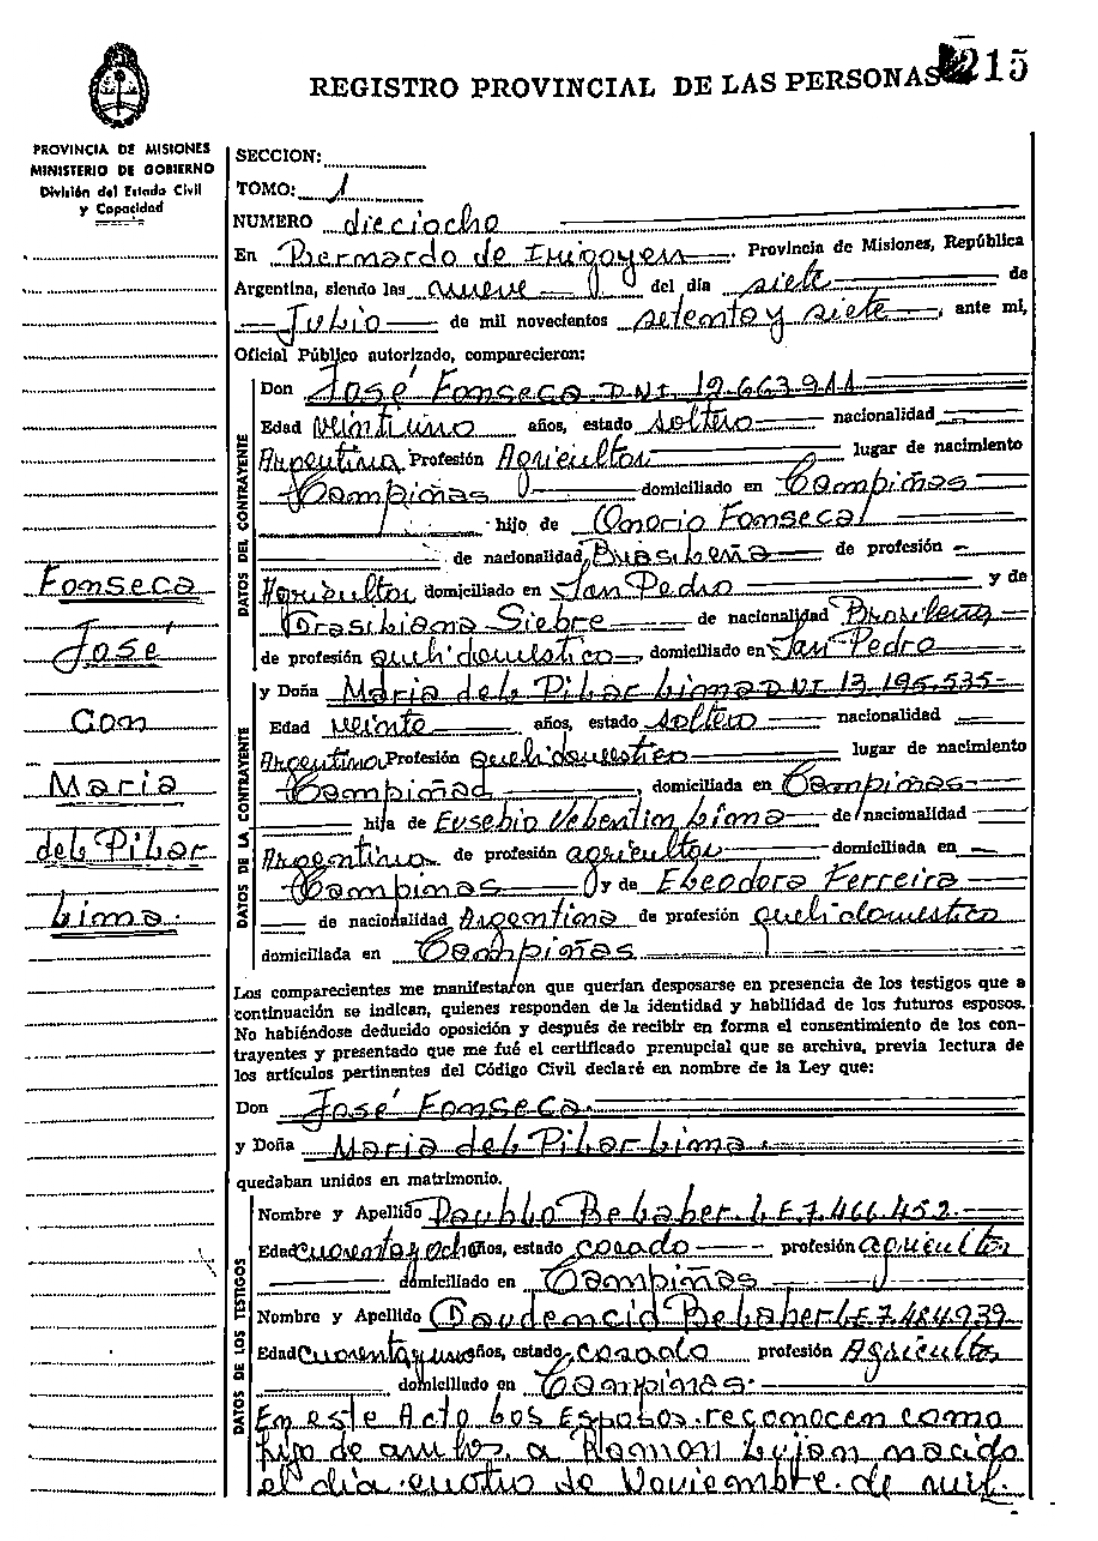 215
REGISTRO PROVINCIAL DE LAS PERSONAS
PROVINCIA DE MISIONES
MINISTERIO DE GOBIERNO
División del Estado Civil
y Capacidad
SECCION:
TOMO: 1
NUMERO dieciocho
En Bernardo de Irigoyen. Provincia de Misiones, República
Argentina, siendo las nueve del día siete de
Julio de mil novecientos setenta y siete, ante mi,
Oficial Público autorizado, comparecieron:
DATOS DEL CONTRAYENTE
Don José Fonseca DNI 12.663.911
Edad veintiuno años, estado soltero nacionalidad
Argentina Profesión Agricultor lugar de nacimiento
Campiñas domiciliado en Campiñas
hijo de Onorio Fonseca
de nacionalidad Brasileña de profesión
Agricultor domiciliado en San Pedro y de
Brasiliana Siebre de nacionalidad Brasileña
de profesión queh. domestico, domiciliado en San Pedro
DATOS DE LA CONTRAYENTE
y Doña Maria del Pilar Lima DNI 13.195.535
Edad veinte años, estado soltero nacionalidad
Argentina Profesión queh. domestico lugar de nacimiento
Campiñas, domiciliada en Campiñas
hija de Eusebio Valentin Lima de nacionalidad
Argentina de profesión agricultor domiciliada en
Campinas y de Eleodora Ferreira
de nacionalidad Argentina de profesión queh. domestico
domiciliada en Campiñas
Los comparecientes me manifestaron que querían desposarse en presencia de los testigos que a
continuación se indican, quienes responden de la identidad y habilidad de los futuros esposos.
No habiéndose deducido oposición y después de recibir en forma el consentimiento de los con-
trayentes y presentado que me fué el certificado prenupcial que se archiva, previa lectura de
los artículos pertinentes del Código Civil declaré en nombre de la Ley que:
Don José Fonseca.
y Doña Maria del Pilar Lima.
quedaban unidos en matrimonio.
DATOS DE LOS TESTIGOS
Nombre y Apellido Paublo Belaber. L.E. 7.466.452.
Edad cuarenta y ocho años, estado casado profesión agricultor
domiciliado en Campiñas
Nombre y Apellido Gaudencio Belaber L.E. 7.484.939.
Edad cuarenta y uno años, estado, casado profesión Agricultor
domiciliado en Campinas.
En este Acto los Esposos. reconocen como
hijo de ambos. a Ramon Lujan nacido
el día cuatro de Noviembre. de mil
Fonseca
José
Con
Maria
del Pilar
Lima.